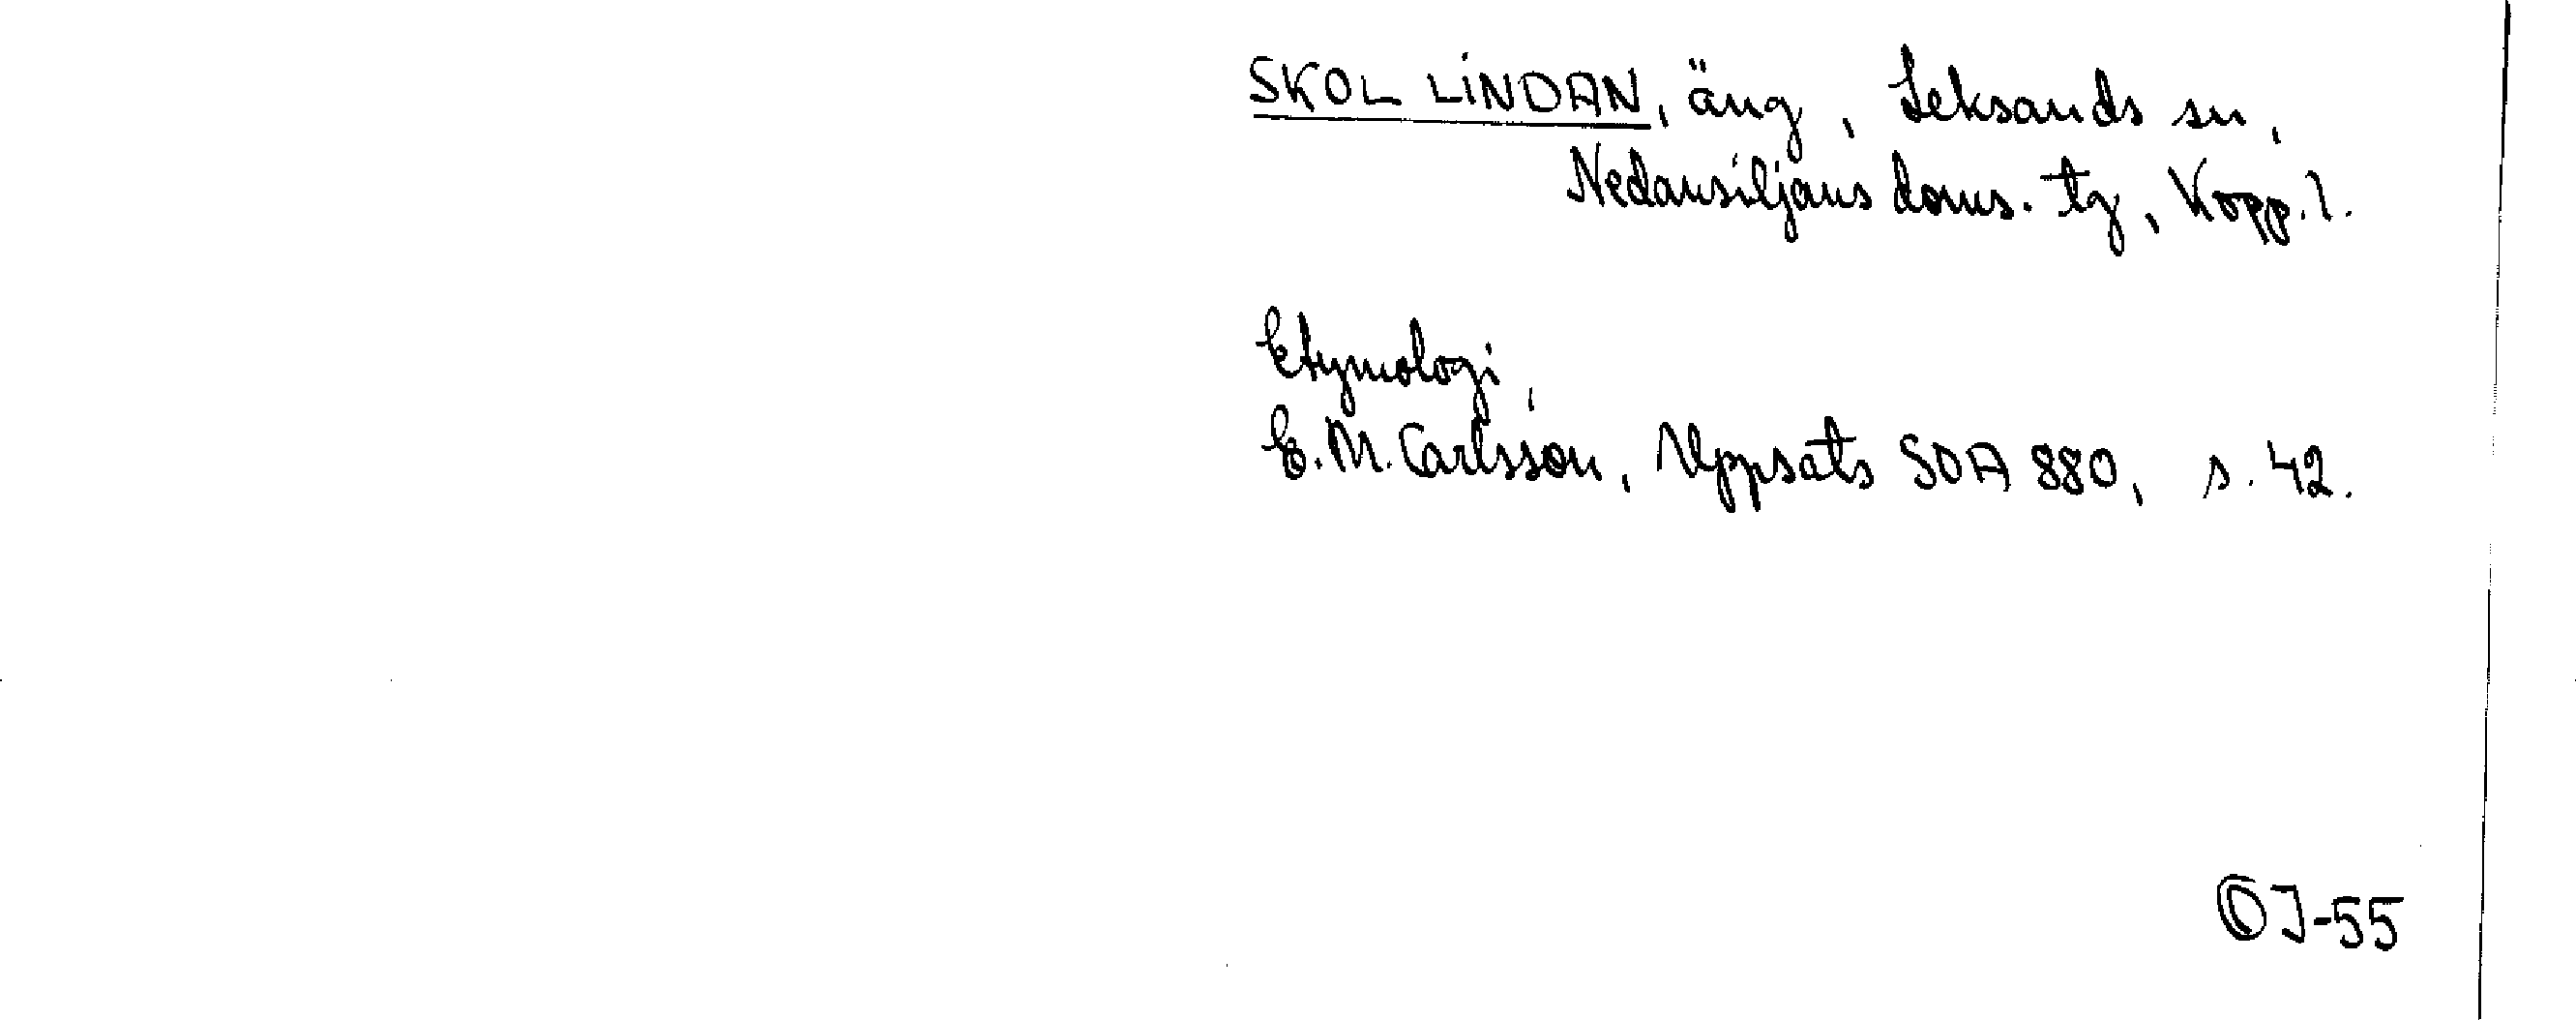 SKOL LINDAN, äng, Leksands sn,
Nedansiljans doms. tg, Kopp. l.
Etymologi,
E. M. Carlsson, Uppsats SOA 880, s. 42.
OJ-55